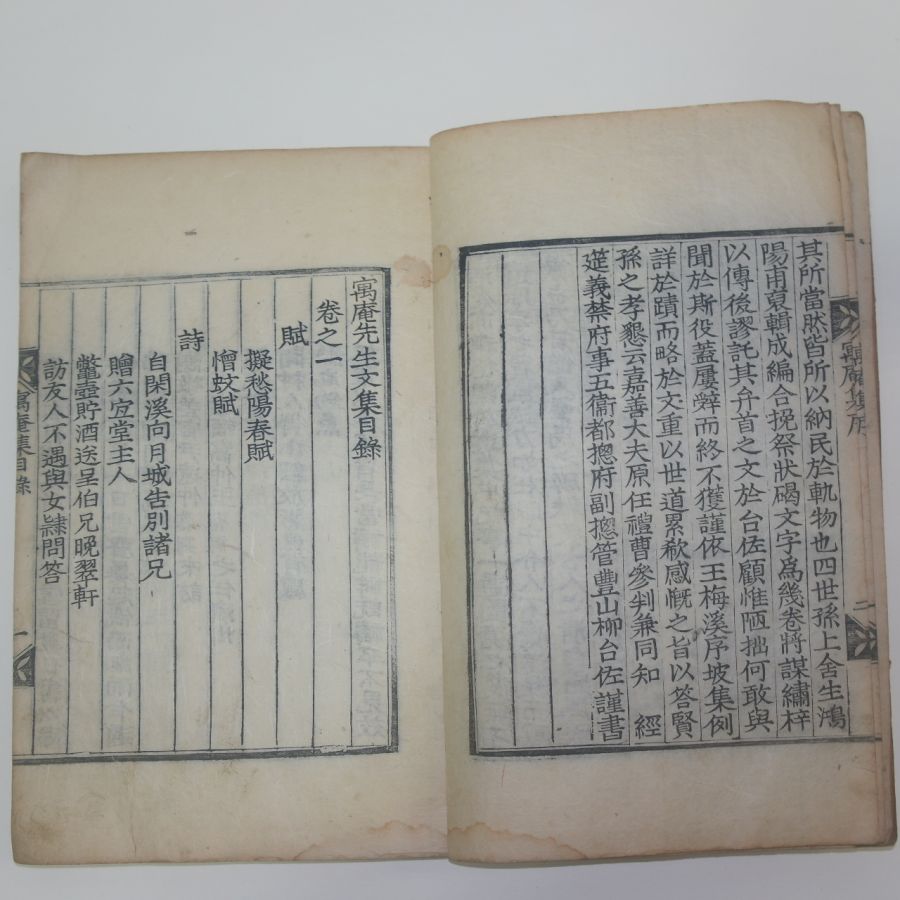 其所當然皆所以納民於軌物也四世孫上舍生鴻
陽甫裒輯成編合挽祭狀碣文字爲幾卷將謀繡梓
以傳後謬託其弁首之文於台佐顧惟陋拙何敢與
聞於斯役蓋屢辤而終不獲謹依王梅溪序坡集例
詳於蹟而略於文重以世道累欷感慨之旨以答賢
孫之孝懇云嘉善大夫原任禮曹參判兼同知 經
筵義禁府事五衛都摠府副摠管豊山柳台佐謹書
寓庵集序
二
寓庵先生文集目錄
卷之一
賦
擬愁陽春賦
憎蚊賦
詩
自閑溪向月城告別諸兄
贈六宜堂主人
鼈壺貯酒送呈伯兄晩翠軒
訪友人不遇與女隷問答
寓庵集目錄
一